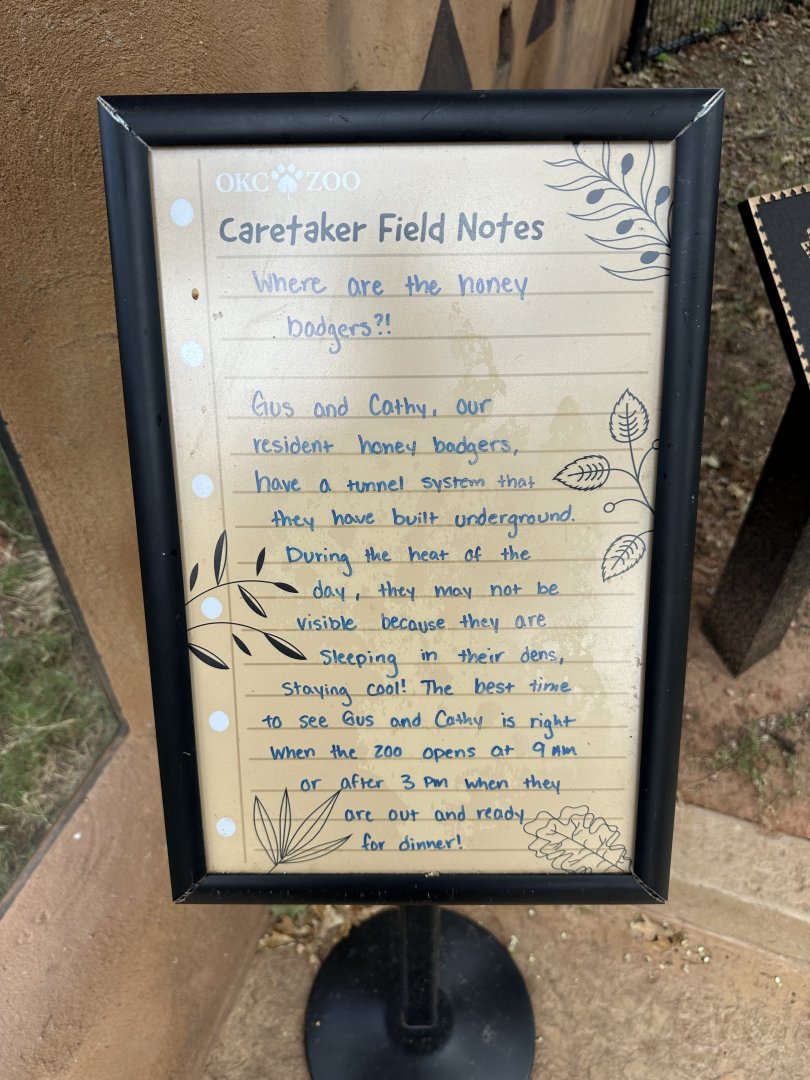 OKC ZOO
Caretaker Field Notes
Where are the honey
badgers?!
Gus and Cathy, our
resident honey badgers,
have a tunnel system that
they have built underground.
During the heat of the
day, they may not be
visible because they are
sleeping in their dens,
staying cool! The best time
to see Gus and Cathy is right
when the zoo opens at 9 AM
or after 3 PM when they
are out and ready
for dinner!